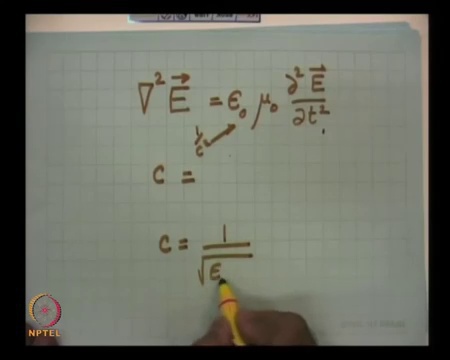 ∇² E⃗ = ϵ₀ μ₀ ∂² E⃗ / ∂t²
1/c²
C =
C = 1 / √ϵ
NPTEL